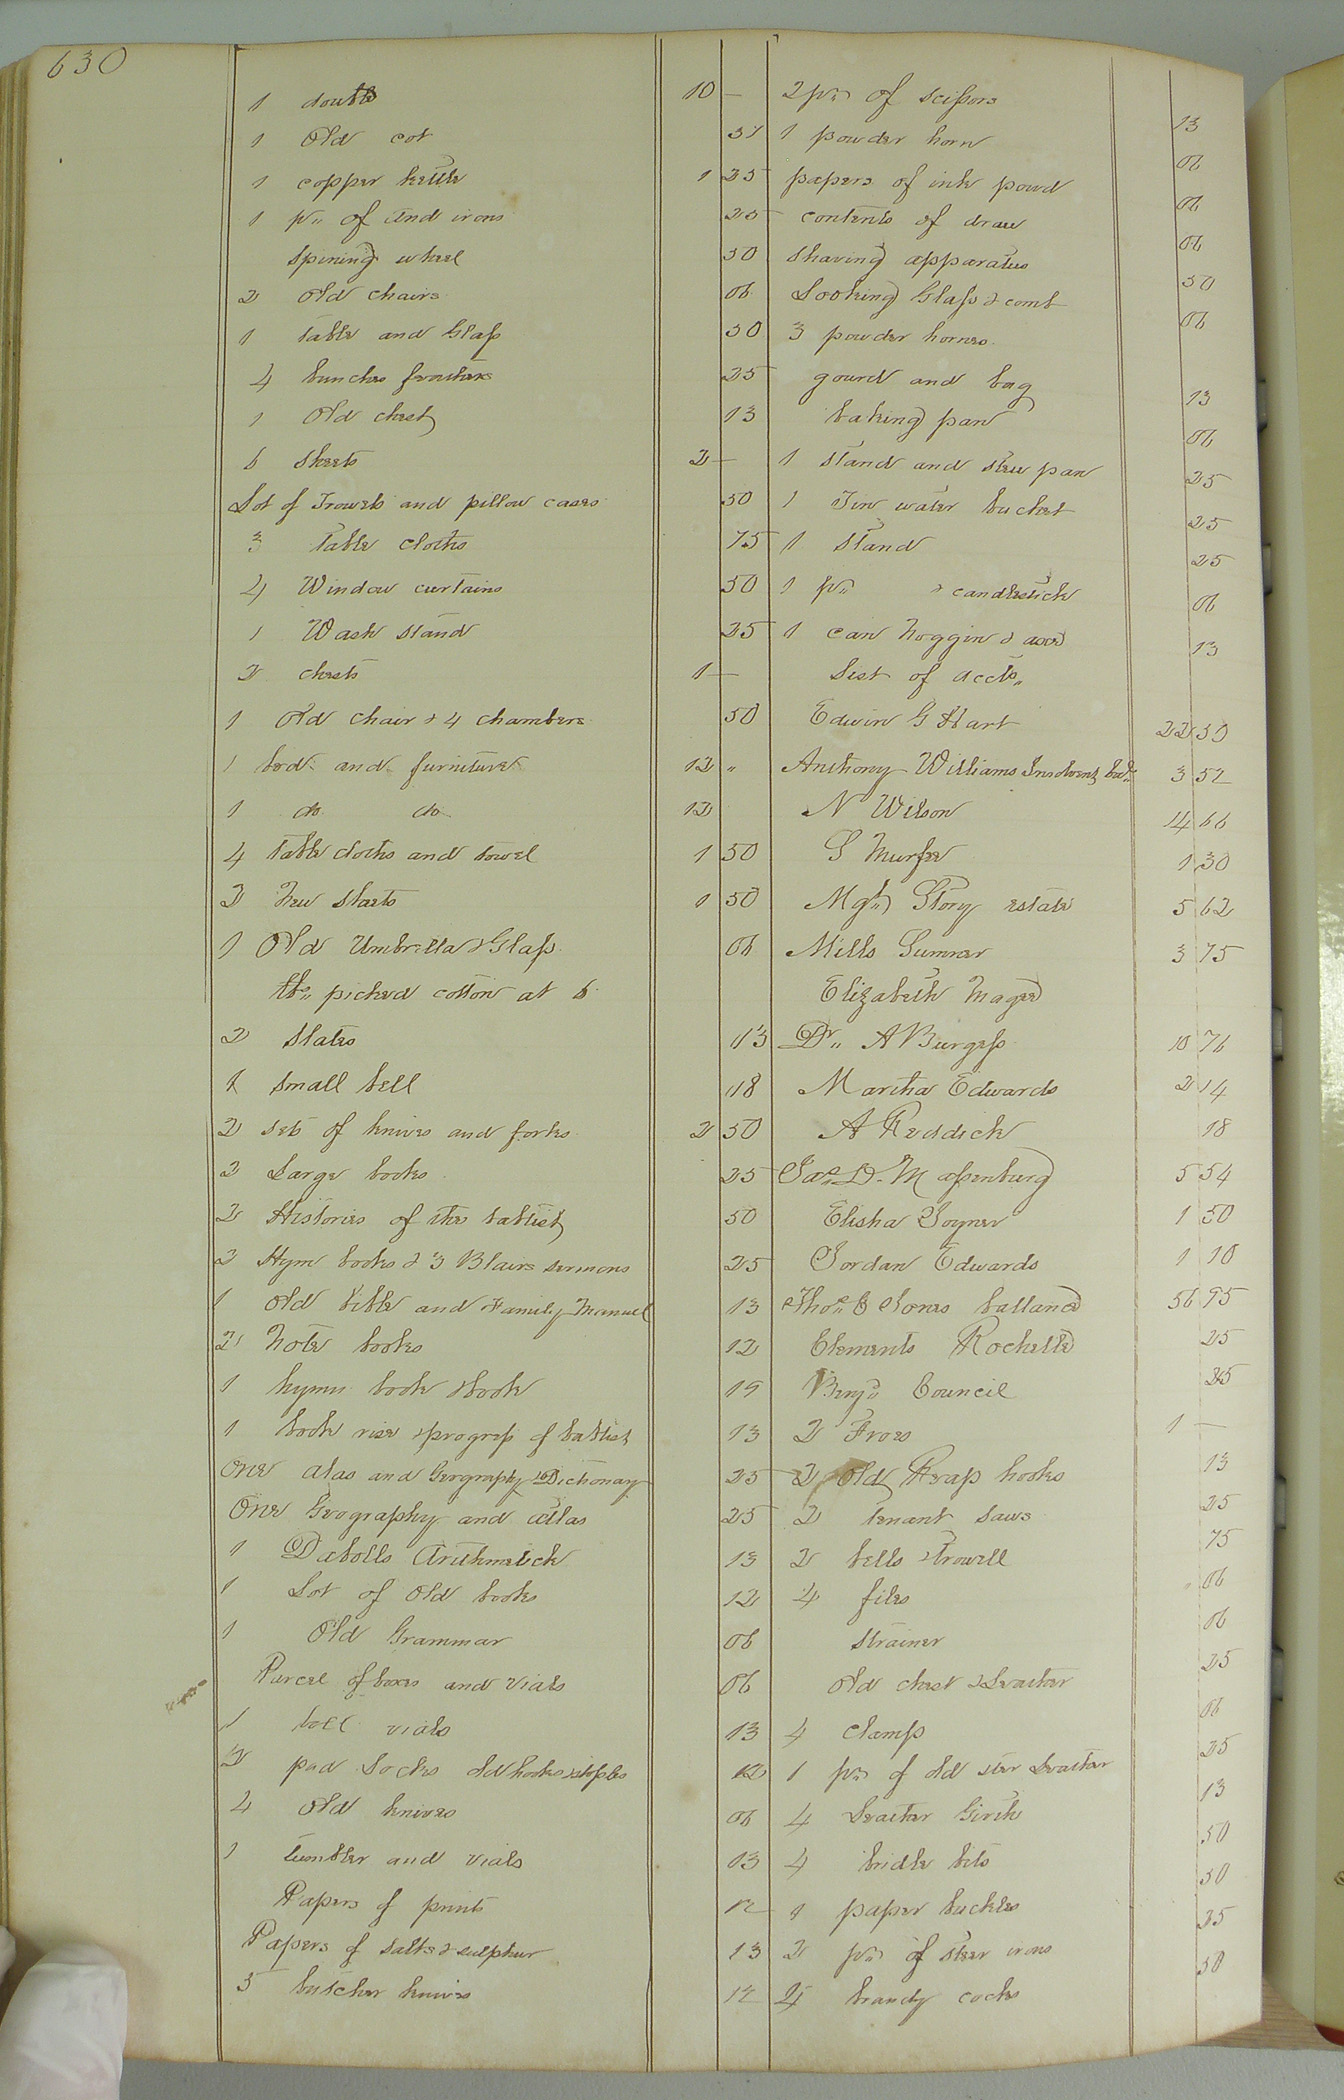 630
1 double 10 —
1 Old cot 37
1 copper kettle 1 25
1 pr. of And irons 25
Spining wheel 50
2 Old chairs 06
1 table and Glass 50
4 bunches feathers 25
1 Old chest 13
6 Sheets 2 —
Lot of Trowels and pillow cases 50
3 table cloths 75
4 Window curtains 50
1 Wash stand 25
2 chests 1 —
1 Old chair & 4 chambers 50
1 bed and furniture 12 "
1 do do 12
4 table cloths and towel 1 50
2 New sheets 1 50
1 Old Umbrella & Glass 06
lbs. picked cotton at 6
2 Slates 13
1 small bell 18
2 sets of knives and forks 2 50
2 Large books 25
2 Histories of the babtist 50
2 Hym books & 3 Blairs sermons 25
1 old bible and Family Manuel 13
2 Note books 12
1 hymn book & book 19
1 book rise & progress of babtist 13
One atas and Gergraphy & Dictionary 25
One Geography and atlas 25
1 Dabolls Arithmetick 13
1 Lot of Old books 12
1 Old Grammar 06
Parcel of boxes and vials 06
1 vials 13
2 pad Locks old hooks & stoples 12
4 old knives 06
1 tumbler and vials 13
Papers of prints 12
Papers of salts & sulphur 13
5 butcher knives 12
2 prs of scissors 13
1 powder horn 06
papers of ink powd 06
contents of draw 06
shaving apparatus 50
Looking Glass & comb 06
3 powder hornes
gourd and bag 13
baking pan 06
1 stand and stew pan 25
1 Tin water bucket 25
1 stand 25
1 pr. & candlestick 06
1 can Noggin & 13
List of accts.
Edwin G Hart 22 50
Anthony Williams Insolvent 3 52
N Wilson 14 66
S Murfee 1 30
Story estate 5 62
Mills Sumner 3 75
Elizabeth Magee
Dr. A Burgess 10 76
Martha Edwards 2 14
A Reddick 18
Jas. D. Massenburg 5 54
Elisha Joyner 1 50
Jordan Edwards 1 10
Thos. E Jones ballance 56 95
Clements Rochelle 25
Benja. Council 25
2 Froes 1 —
2 old Reap hooks 13
2 tenant saws 25
2 bells & trowell 75
4 files 06
strainer 06
old chest & Leather 25
4 clamps 06
1 pr. of old ster Leather 25
4 Leather Girth 13
4 bridle bits 50
1 paper buckles 50
2 prs of steer irons 25
4 brandy cocks 50